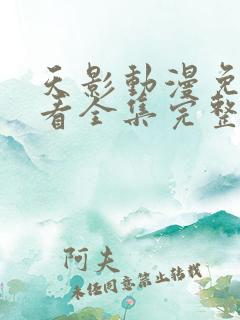 天影動漫免
看全集完整
阿夫
未经同意禁止转载